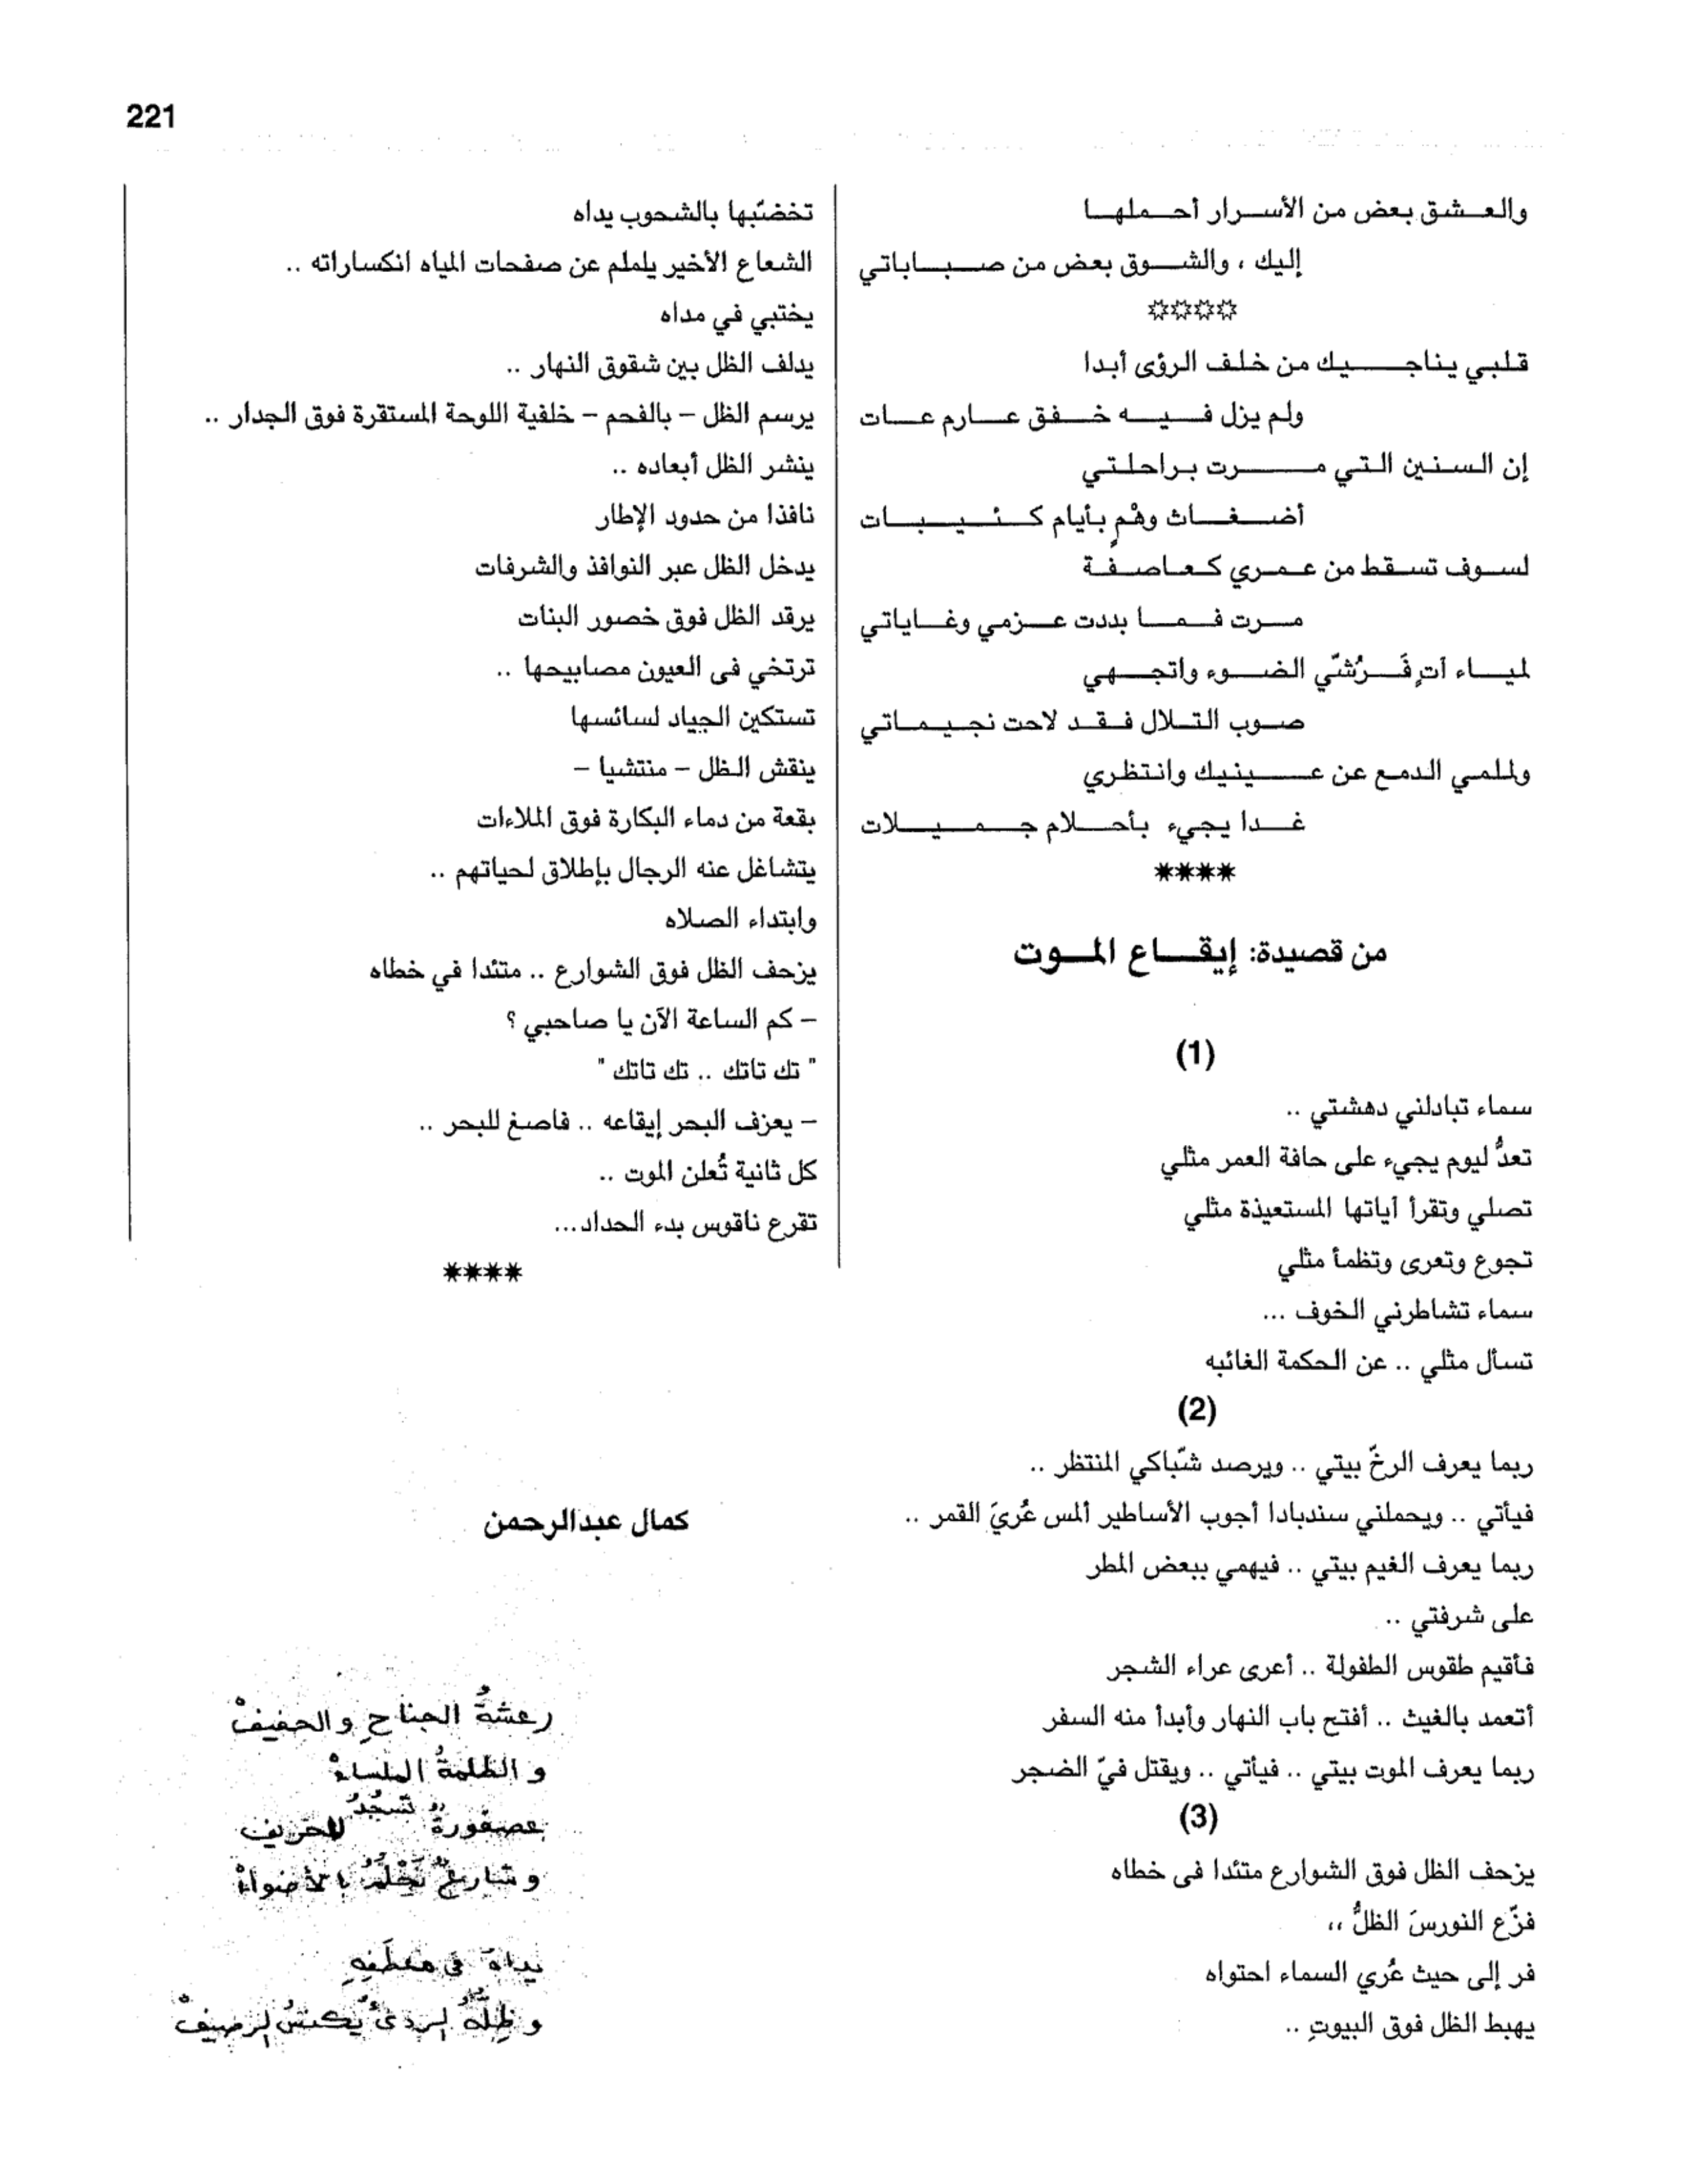 221
والعشق بعض من الأسرار أحملها
إليك ، والشوق بعض من صباباتي
****
قلبي يناجيك من خلف الرؤى أبدا
ولم يزل فيه خفق عارم عات
إن السنين التي مرت براحلتي
أضغاث وهْمٍ بأيام كئيبات
لسوف تسقط من عمري كعاصفة
مرت فما بددت عزمي وغاياتي
لمياء آتٍ فَرُشّي الضوء واتجهي
صوب التلال فقد لاحت نجيماتي
ولملمي الدمع عن عينيك وانتظري
غدا يجيء بأحلام جميلات
****
من قصيدة: إيقاع الموت
(1)
سماء تبادلني دهشتي ..
تعدُّ ليوم يجيء على حافة العمر مثلي
تصلي وتقرأ آياتها المستعيذة مثلي
تجوع وتعرى وتظمأ مثلي
سماء تشاطرني الخوف ...
تسأل مثلي .. عن الحكمة الغائبه
(2)
ربما يعرف الرخّ بيتي .. ويرصد شبّاكي المنتظر ..
فيأتي .. ويحملني سندبادا أجوب الأساطير ألمس عُريَ القمر ..
ربما يعرف الغيم بيتي .. فيهمي ببعض المطر
على شرفتي ..
فأقيم طقوس الطفولة .. أعرى عراء الشجر
أتعمد بالغيث .. أفتح باب النهار وأبدأ منه السفر
ربما يعرف الموت بيتي .. فيأتي .. ويقتل فيّ الضجر
(3)
يزحف الظل فوق الشوارع متئدا فى خطاه
فزّع النورسَ الظلُّ ،،
فر إلى حيث عُري السماء احتواه
يهبط الظل فوق البيوتِ ..
تخضبّها بالشحوب يداه
الشعاع الأخير يلملم عن صفحات المياه انكساراته ..
يختبي في مداه
يدلف الظل بين شقوق النهار ..
يرسم الظل – بالفحم – خلفية اللوحة المستقرة فوق الجدار ..
ينشر الظل أبعاده ..
نافذا من حدود الإطار
يدخل الظل عبر النوافذ والشرفات
يرقد الظل فوق خصور البنات
ترتخي فى العيون مصابيحها ..
تستكين الجياد لسائسها
ينقش الظل – منتشيا –
بقعة من دماء البكارة فوق الملاءات
يتشاغل عنه الرجال بإطلاق لحياتهم ..
وابتداء الصلاه
يزحف الظل فوق الشوارع .. متئدا في خطاه
– كم الساعة الآن يا صاحبي ؟
" تك تاتك .. تك تاتك "
– يعزف البحر إيقاعه .. فاصغ للبحر ..
كل ثانية تُعلن الموت ..
تقرع ناقوس بدء الحداد...
****
كمال عبدالرحمن
رعشةُ الجناحِ والحفيفْ
و الظلمةُ الملساءْ
عصفورةٌ تسجُدُ للخريف
وشارعٌ يَحْلُمُ بالأضواءْ
يداهُ فى معطفِهِ
وظِلُّهُ البردىُّ يكنسُ الرصيفْ